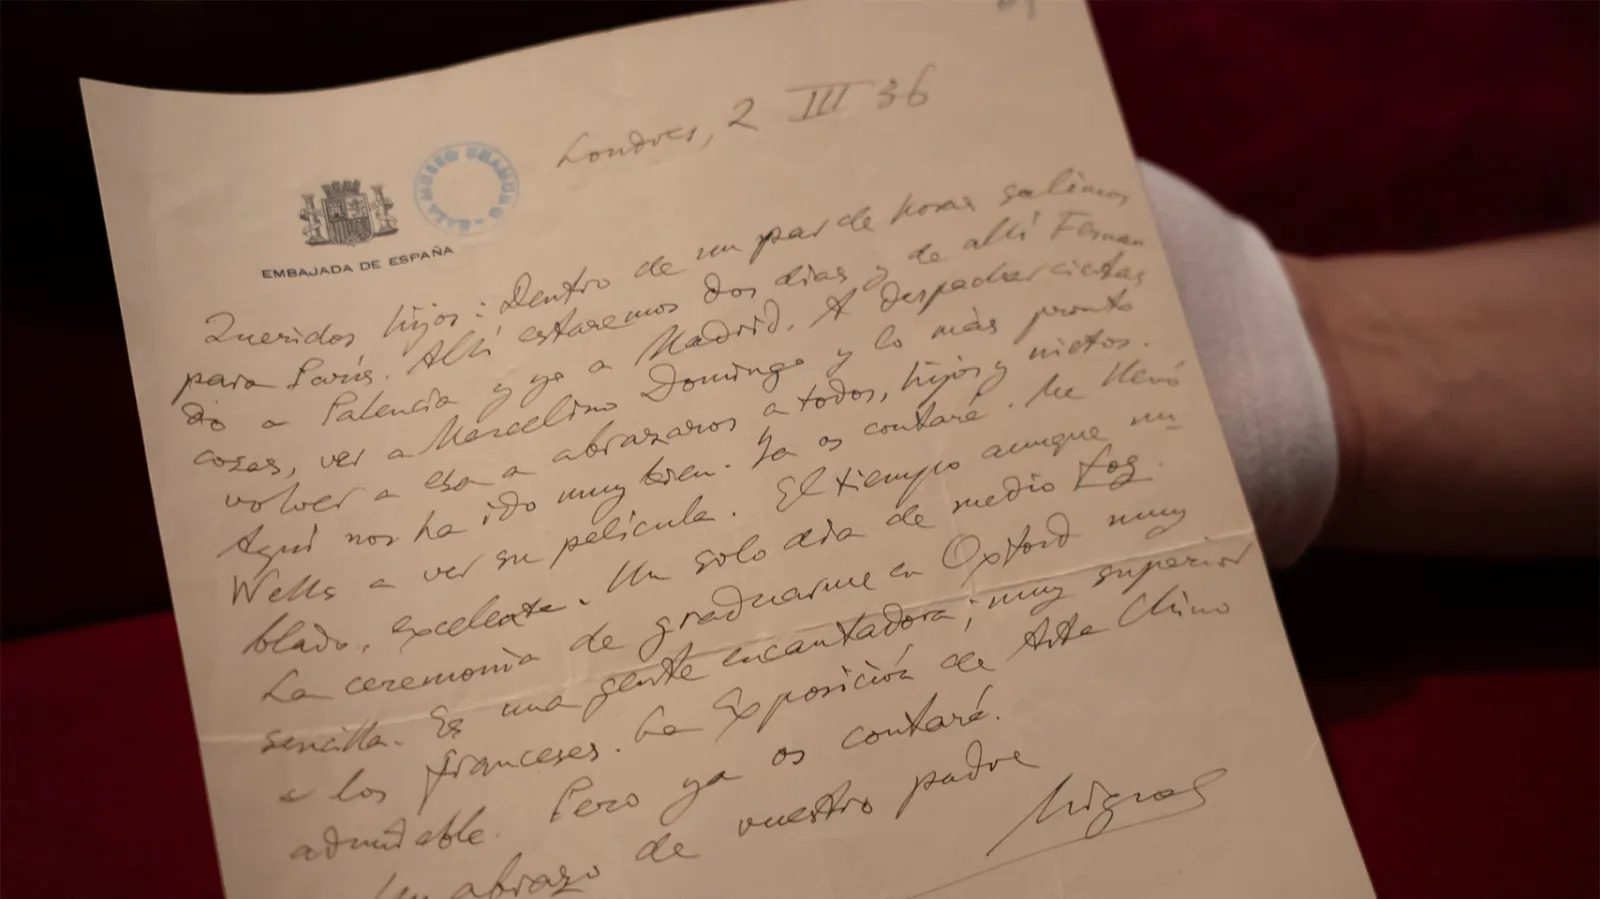 Londres, 2 III 36
CASA MUSEO UNAMUNO
EMBAJADA DE ESPAÑA
Queridos hijos: Dentro de un par de horas salimos
para París. Allí estaremos dos días y de allí Fernan
do a Palencia y yo a Madrid. A despachar ciertas
cosas, ver a Marcelino Domingo y lo más pronto
volver a esa a abrazaros a todos, hijos y nietos.
Aquí nos ha ido muy bien. Ya os contaré. Me llevó
Wells a ver su película. El tiempo aunque nu-
blado, excelente. Un solo día de medio fog.
La ceremonia de graduarme en Oxford muy
sencilla. Es una gente encantadora; muy superior
a los franceses. La Exposición de Arte Chino
admirable. Pero ya os contaré.
Un abrazo de vuestro padre
Miguel